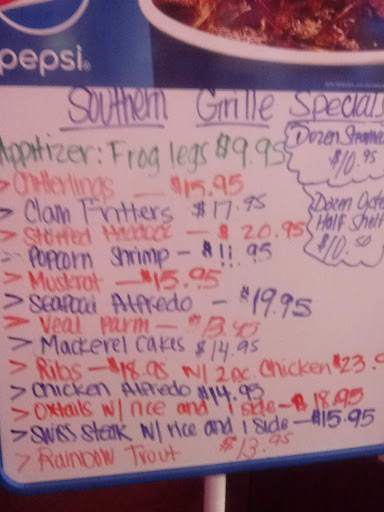 pepsi
Southern Grille Specials
Appitizer: Frog legs $9.95
Dozen Steamed
$10.95
> Chitterlings — $15.95
> Clam Fritters $17.95
Dozen Oyste
Half Shell
$10.50
> Stuffed Haddock — $20.95
> Popcorn Shrimp — $11.95
> Muskrat — $15.95
> Seafood Alfredo — $19.95
> Veal Parm — $13.95
> Mackerel Cakes $14.95
> Ribs — $18.95 W/ 2pc. Chicken $23.9
> Chicken Alfredo $14.95
> Oxtails W/ rice and 1 side — $18.95
> Swiss Steak W/ rice and 1 side — $15.95
> Rainbow Trout $13.95